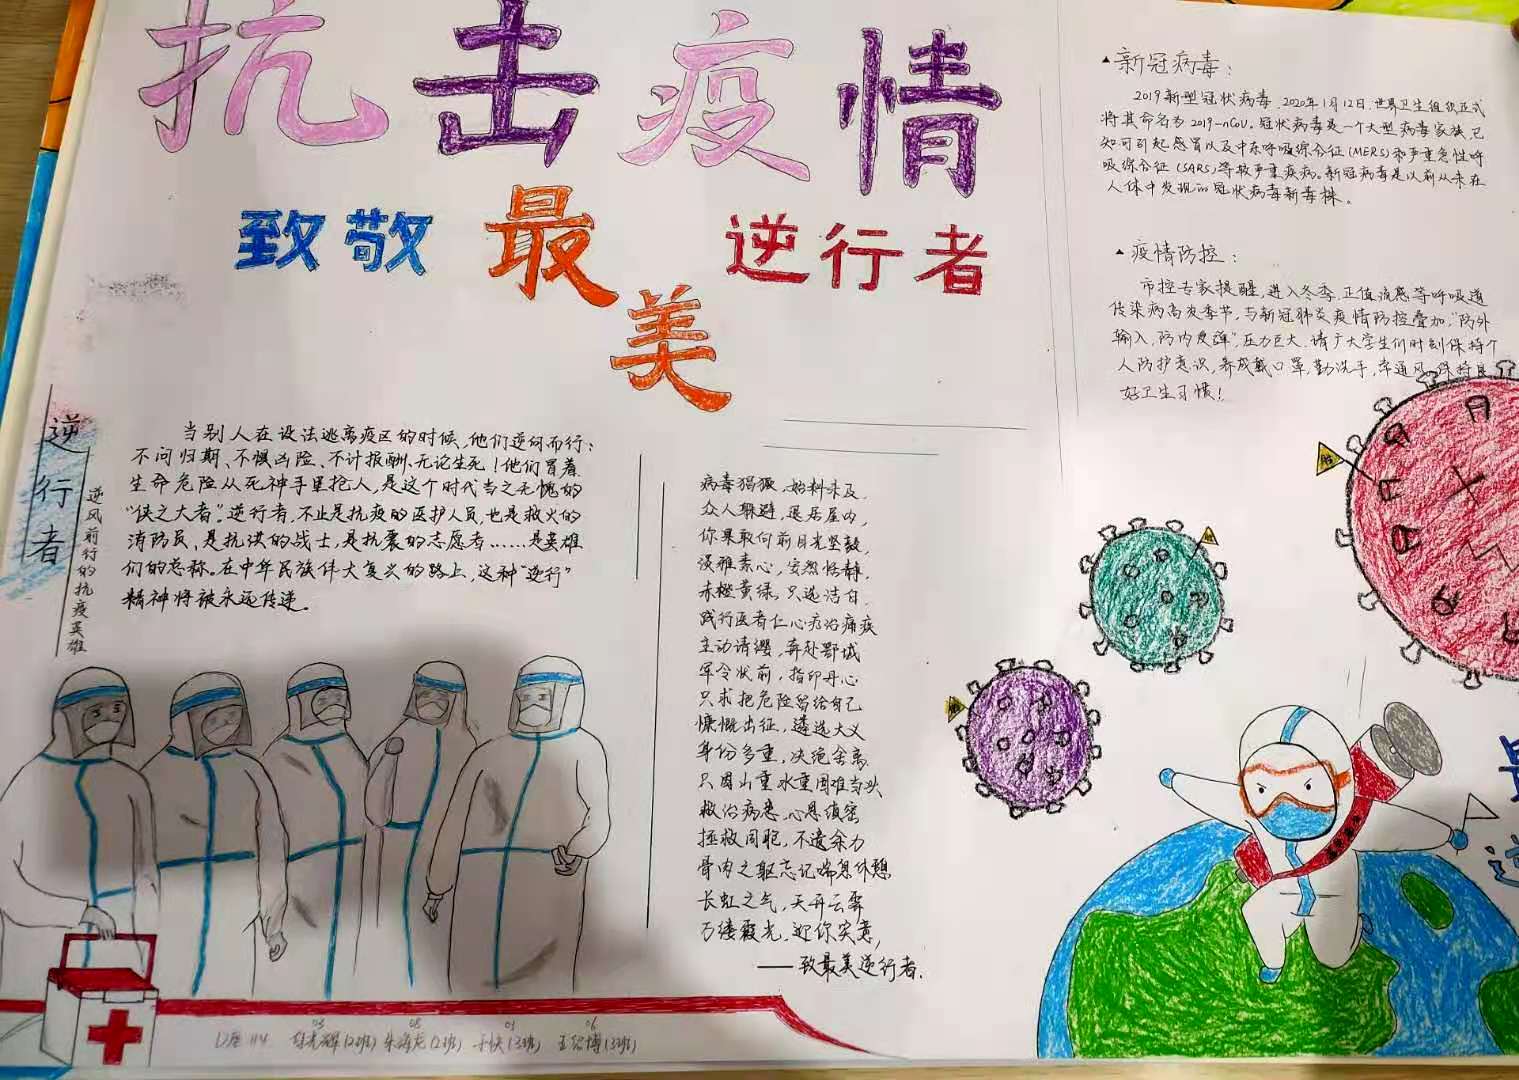 抗击疫情
致敬最美逆行者
▲新冠病毒：
2019新型冠状病毒,2020年1月12日,世界卫生组织正式
将其命名为2019-nCoV。冠状病毒是一个大型病毒家族,已
知可引起感冒以及中东呼吸综合征(MERS)和严重急性呼
吸综合征(SARS)等较严重疾病。新冠病毒是以前从未在
人体中发现的冠状病毒新毒株。
▲疫情防控：
市控专家提醒,进入冬季,正值流感等呼吸道
传染病高发季节,与新冠肺炎疫情防控叠加,"防外
输入,防内反弹",压力巨大,请广大学生们时刻保持个
人防护意识,养成戴口罩,勤洗手,常通风,保持良
好卫生习惯！
逆行者
逆风前行的抗疫英雄
当别人在设法逃离疫区的时候,他们逆向而行；
不问归期、不惧凶险、不计报酬、无论生死！他们冒着
生命危险从死神手里抢人,是这个时代当之无愧的
"侠之大者"。逆行者,不止是抗疫的医护人员,也是救火的
消防员、是抗洪的战士,是抗震的志愿者……是英雄
们的总称。在中华民族伟大复兴的路上,这种"逆行"
精神将被永远传递。
病毒猖獗,始料未及,
众人躲避,退居屋内,
你果敢向前目光坚毅,
淡雅素心,安然恬静,
赤橙黄绿,只选洁白,
践行医者仁心疗治痛疾
主动请缨,奔赴鄂城
军令状前,指印丹心
只求把危险留给自己
慷慨出征,遴选大义
身份多重,决绝舍离
只因山重水重困难当头
救治病患,心思缜密
拯救同胞,不遗余力
骨肉之躯忘记喘息休憩
长虹之气,天开云霁
万缕霞光,迎你笑意,
——致最美逆行者.
胜
胜
胜
114
03 08 01 06
(2班) (2班) (3班) (3班)